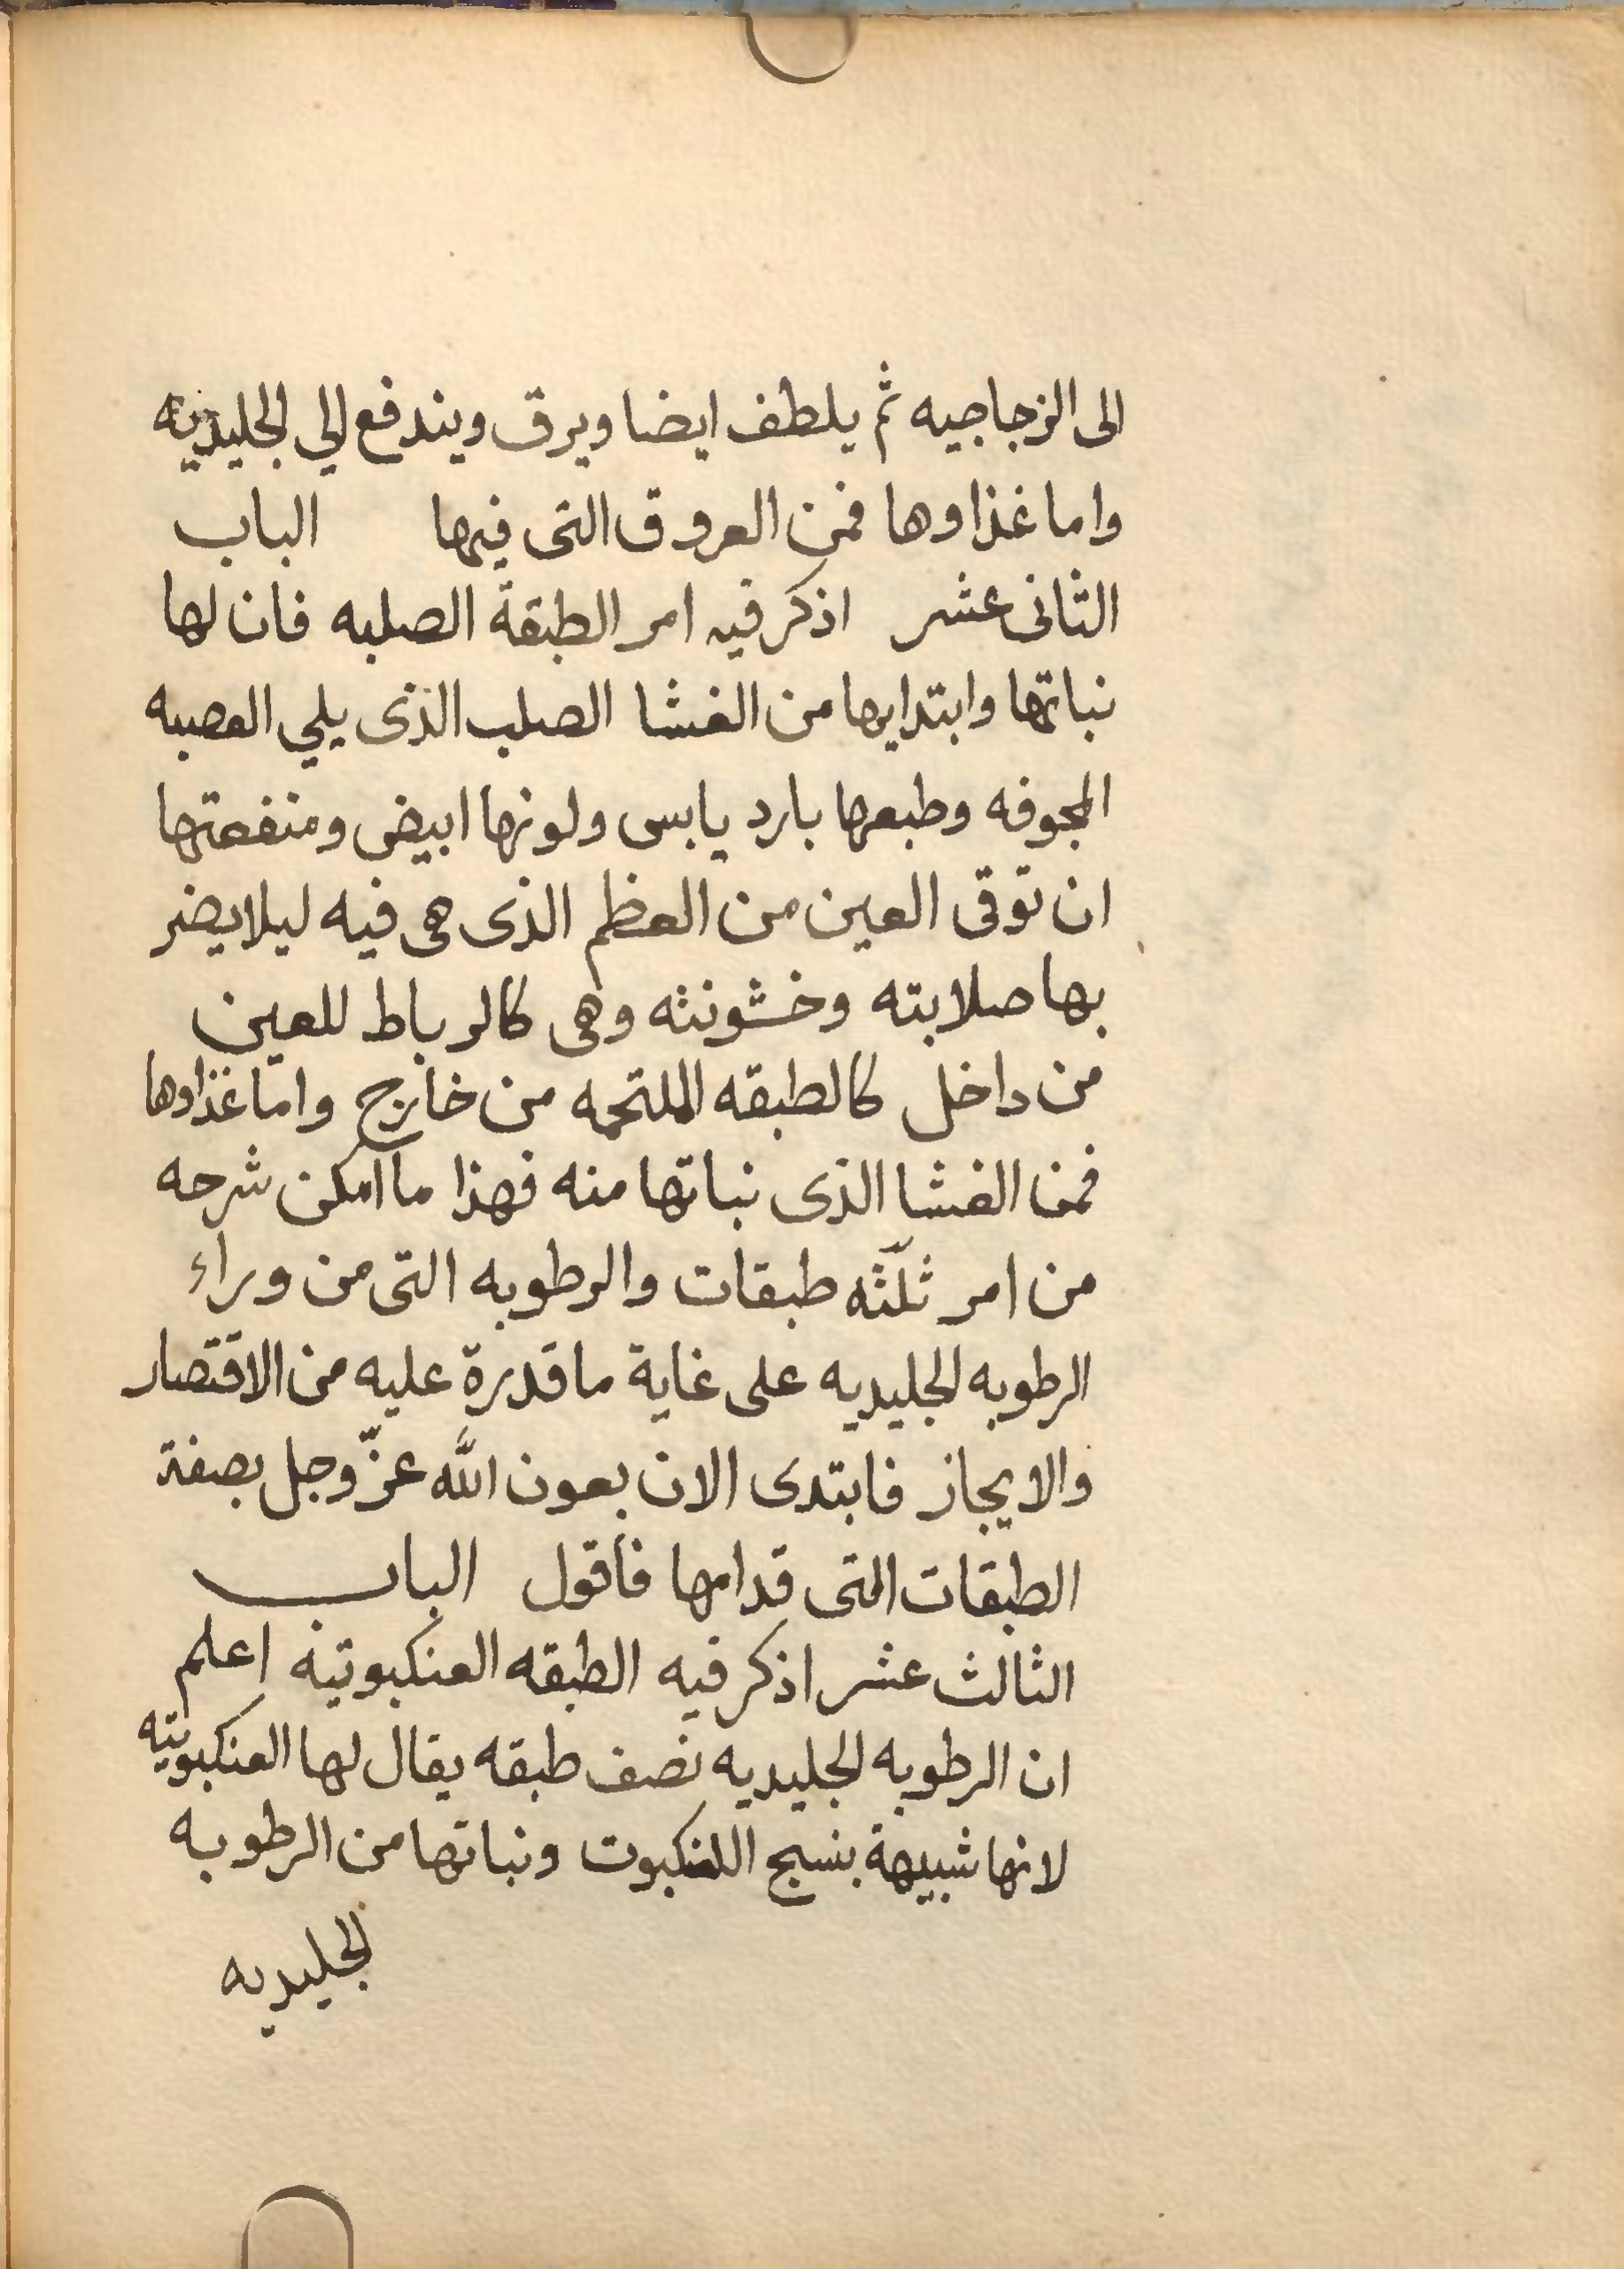 الى الزجاجيه ثم يلطف ايضا ويرق ويندفع الي الجليديه
واما غذاوها فمن العروق التى فيها الباب
الثانى عشر اذكر فيه امر الطبقة الصلبه فان لها
نباتها وابتدايها من الغشا الصلب الذى يلي العصبه
المجوفه وطبعها بارد يابس ولونها ابيض ومنفعتها
ان توقى العين من العظم الذى هى فيه ليلا يضر
بها صلابته وخشونثه وهى كالرباط للعين
من داخل كالطبقه الملتحمه من خارج واما غذاوها
فمن الغشا الذى نباتها منه فهذا ما امكن شرحه
من امر ثلثه طبقات والرطوبه التى من وراء
الرطوبه الجليديه على غاية ما قدرة عليه من الاقتصار
والايجاز فابتدى الان بعون الله عزّ وجل بصفة
الطبقات التى قدامها فأقول الباب
الثالث عشر اذكر فيه الطبقه العنكبوتيه اعلم
ان الرطوبه الجليديه نصف طبقه يقال لها العنكبوتيه
لانها شبيهة بنسج العنكبوت ونباتها من الرطوبه
الجليديه